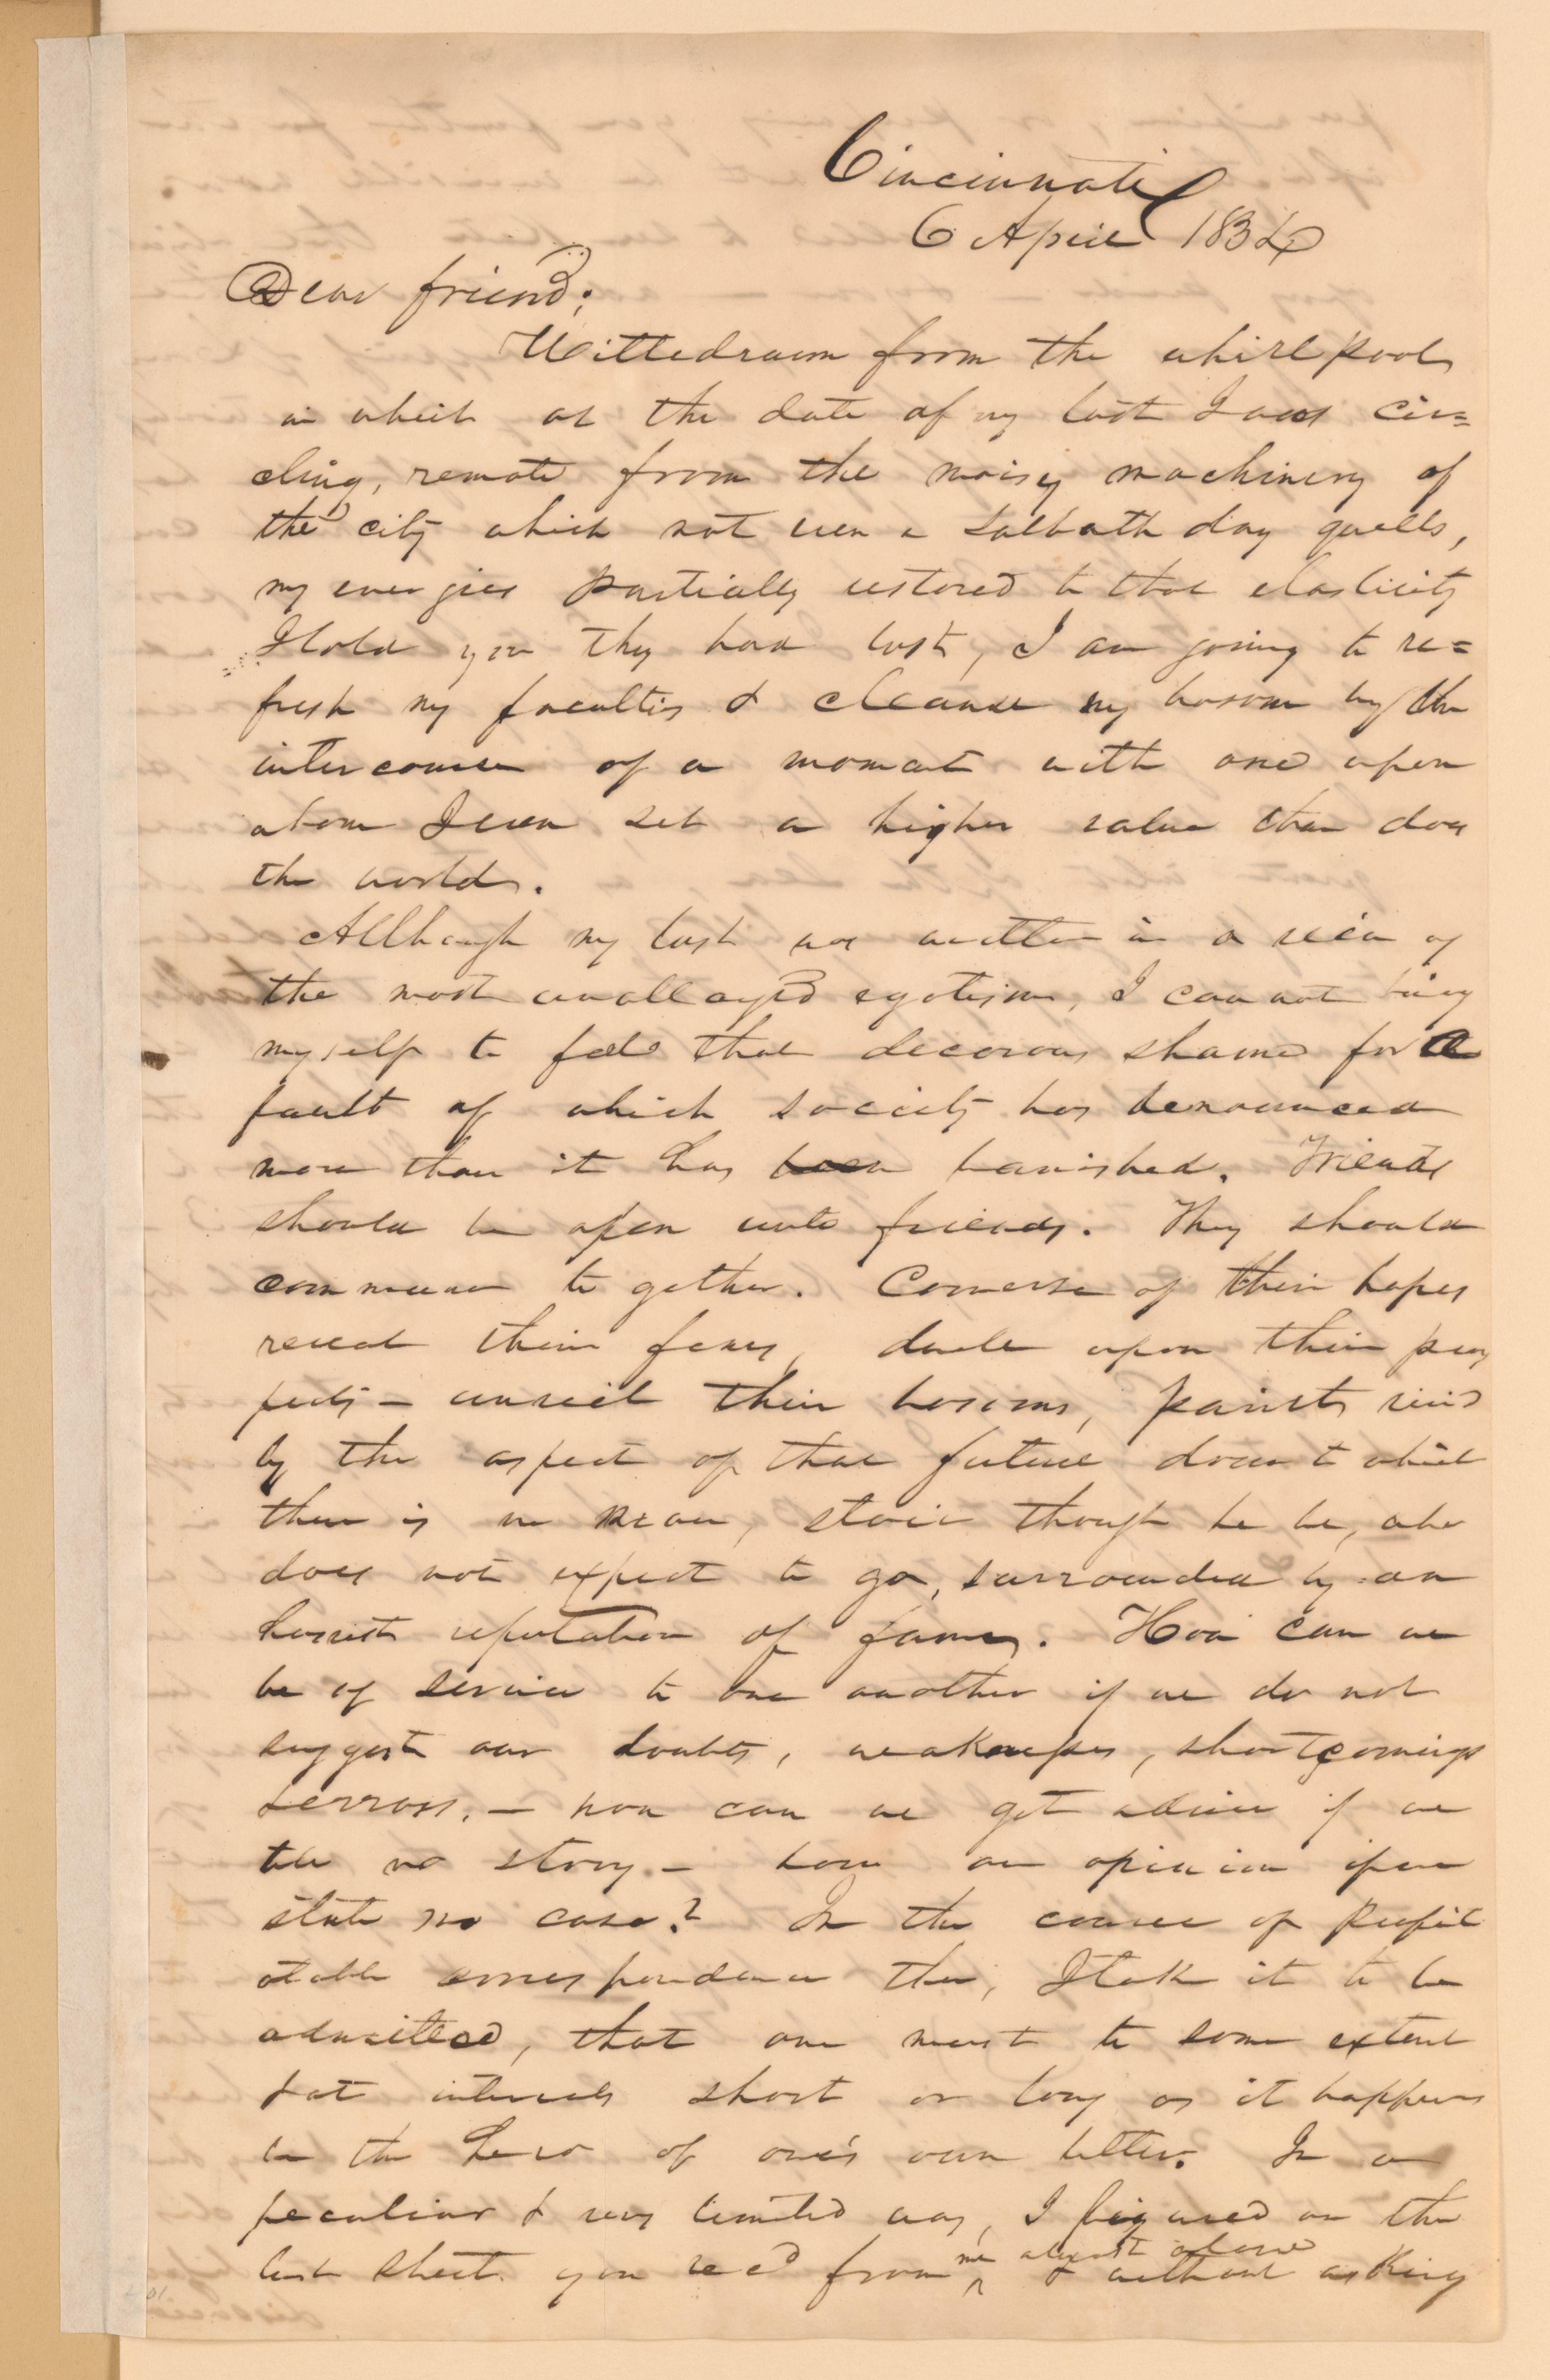 Cincinnati
6 April 1834
Dear friend;
Withdrawn from the whirlpool
in which at the date of my last I was cir=
cling, remote from the noisy machinery of
the city which not even a Sabbath day quells,
my energies partially restored to that elasticity
I told you they had lost, I am going to re=
fresh my faculties & cleanse my bosom by the
intercourse of a moment with one upon
whom I even set a higher value than does
the world.
Although my last was written in a vein of
the most unallayed egotism, I cannot bring
myself to feel that decorous shame for a
fault of which society has denounced
more than it has been banished. Friends
should be open unto friends. They should
commune together. Converse of their hopes
reveal their fears, dwell upon their pros
pects — unveil their bosoms, paint
by the aspect of that future down to which
there is no man, stoic though he be, who
does not expect to go, surrounded by an
honest reputation of fame. How can we
be of service to one another if we do not
suggest our doubts, weaknesses, shortcomings
& errors. — how can we get advice if we
tell no story — have an opinion if we
state no case? In the course of profit
able correspondence then, I take it to be
admitted, that one must to some extent
& at intervals short or long as it happens
be the hero of one's own letter. In a
peculiar & very limited way, I figured on the
last sheet you rec'd from me almost alone & without asking